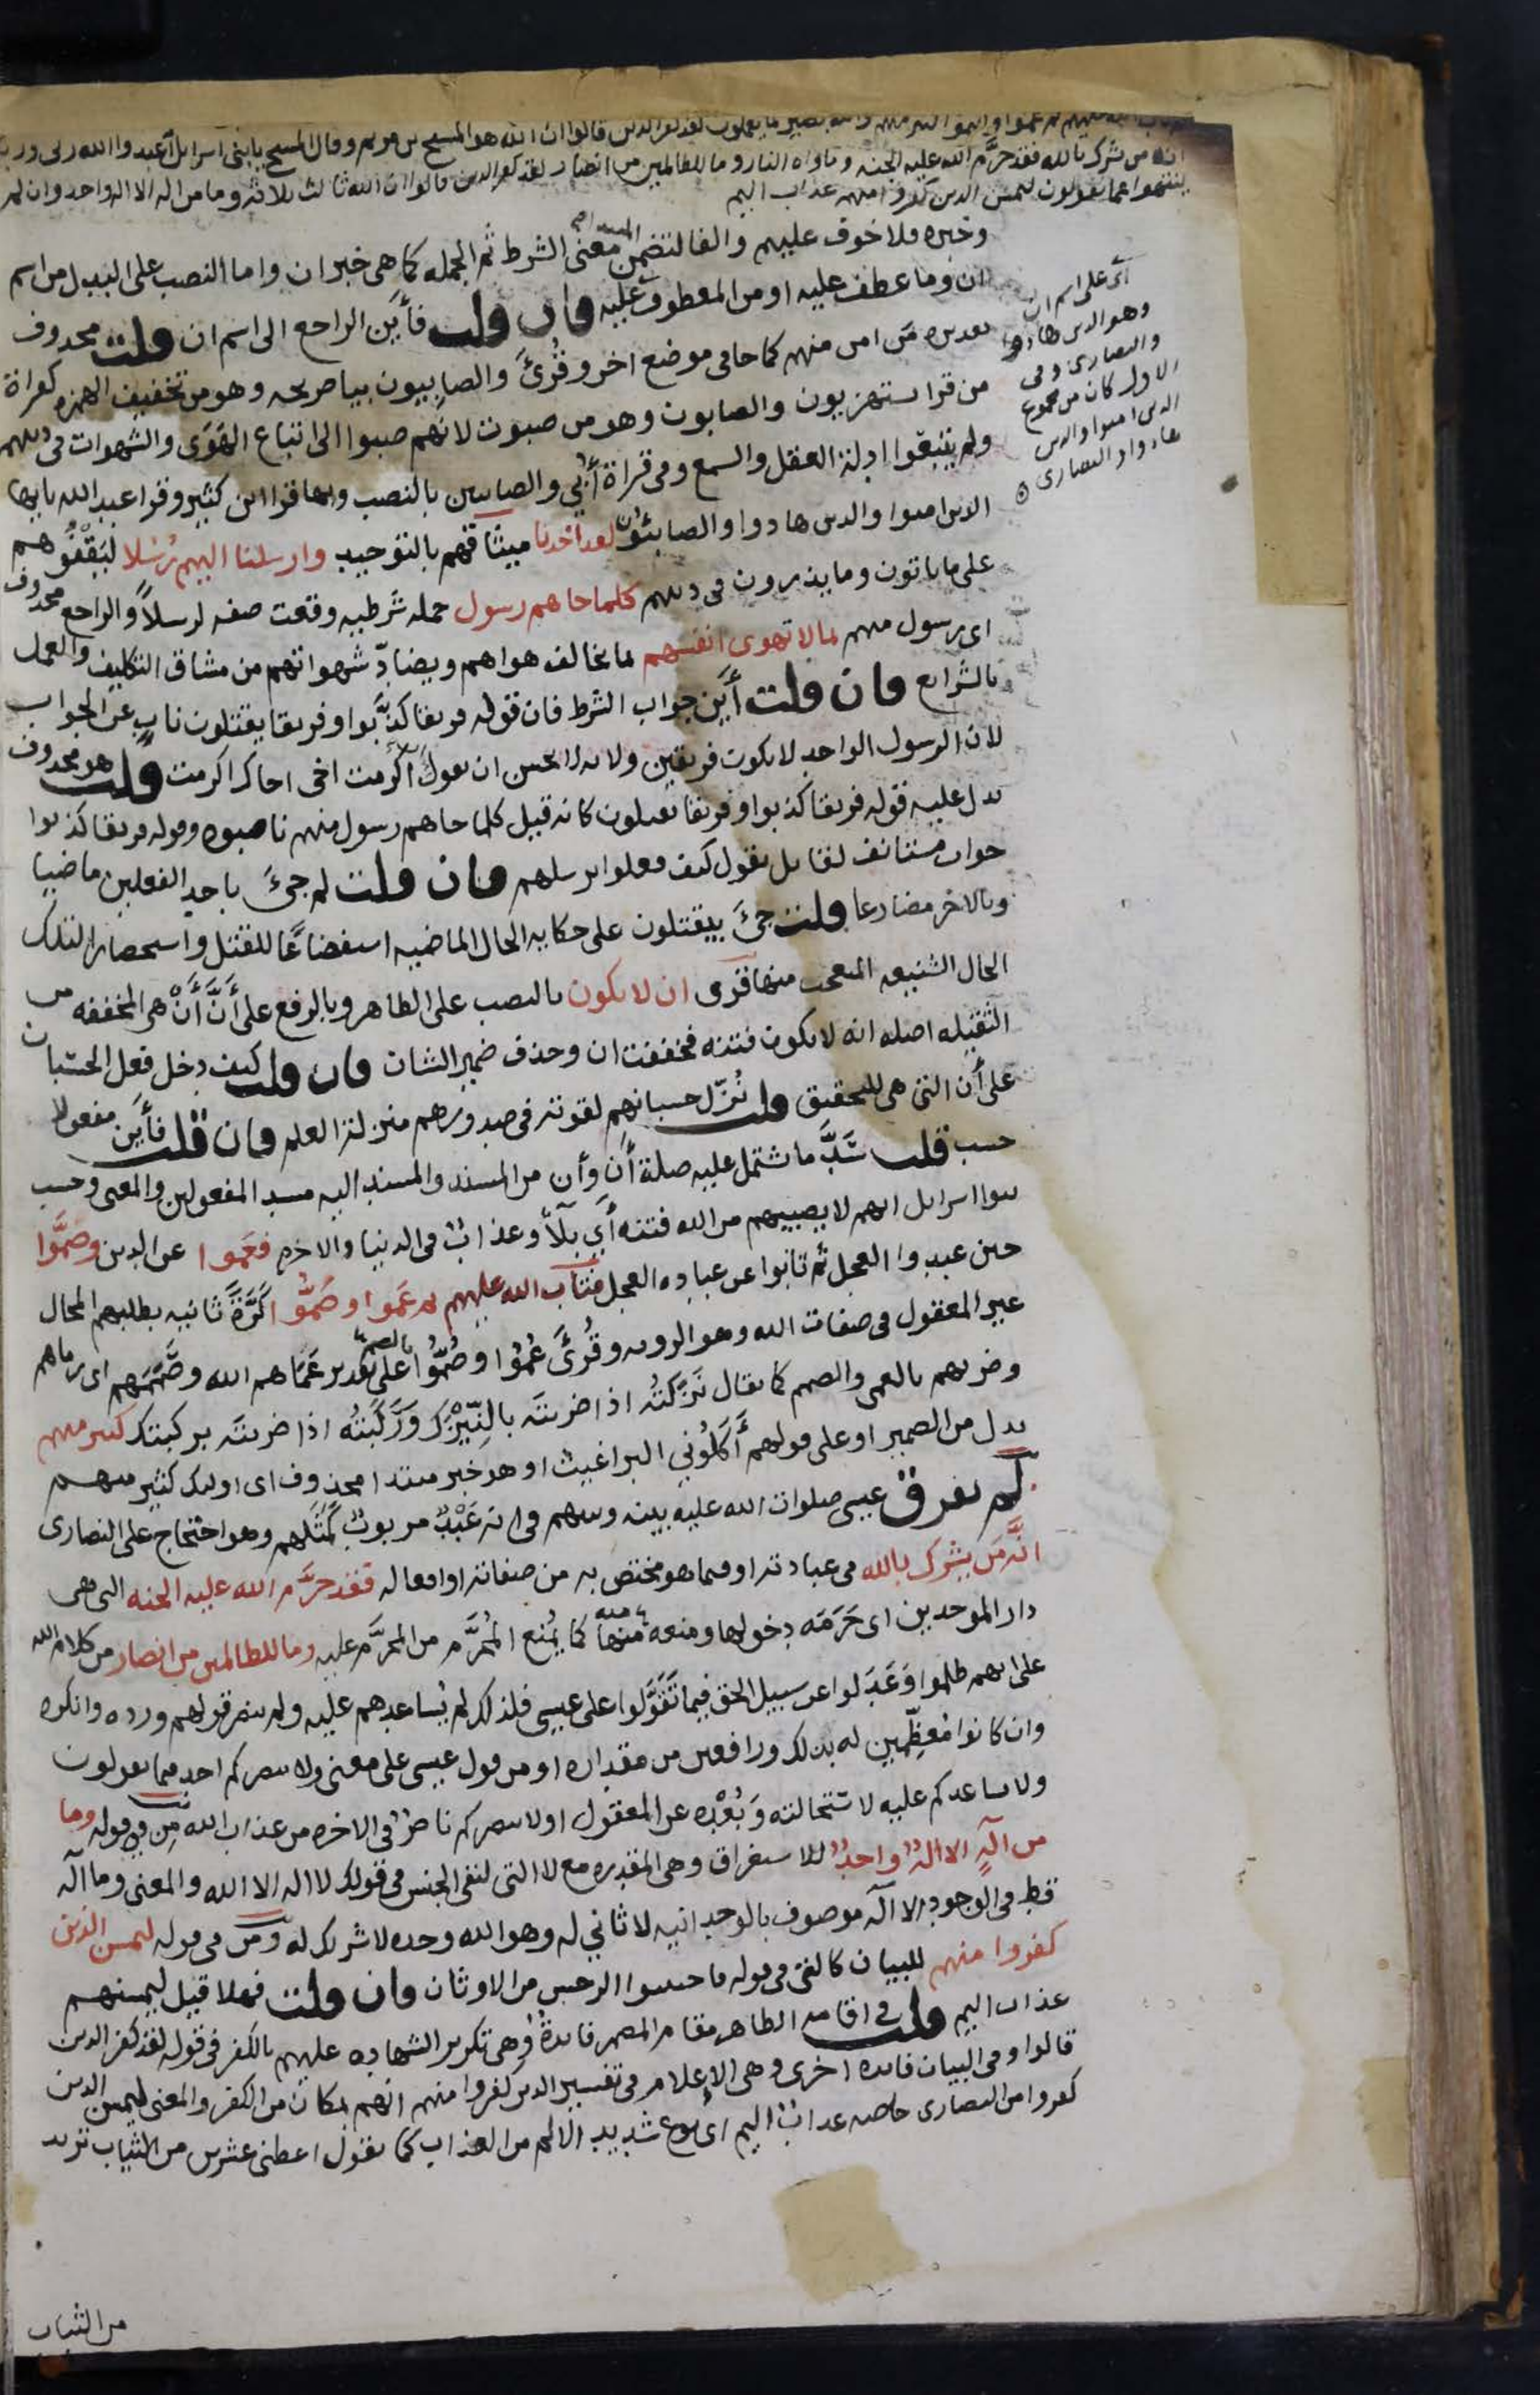 ثم تاب الله عليهم ثم عموا وصموا كثير منهم والله بصير بما يعملون لقد كفر الذين قالوا ان الله هو المسيح بن مريم وقال المسيح يا بنى اسرايل اعبدوا الله ربى وربكم
انه من يشرك بالله فقد حرم الله عليه الجنه وماواه النار وما للظالمين من انصار لقد كفر الذين قالوا ان الله ثالث ثلاثه وما من اله الا اله واحد وان لم
ينتهوا عما يقولون ليمسن الذين كفروا منهم عذاب اليم
وخبره فلا خوف عليهم والفا لتضمن المبتدا معنى الشرط ثم الجمله كما هى خبر ان واما النصب على البدل من اسم
ان وما عطف عليه او من المعطوف عليه فان قلت فأين الراجع الى اسم ان قلت محذوف
تقديره من امن منهم كما جا فى موضع اخر وقُرئ والصابيون بيا صريحه وهو من تخفيف الهمزه كقراة
من قرا يستهزيون والصابون وهو من صبوت لانهم صبوا الى اتباع الهوى والشهوات فى دينهم
ولم يتبعوا ادلة العقل والسمع وفى قراة أُبَي والصابيين بالنصب وبها قرا ابن كثير وقرا عبد الله يا ايها
الذين امنوا والذين هادوا والصابئون لقد اخذنا ميثاقهم بالتوحيد وارسلنا اليهم رُسُلا ليَقِفُوهم
على ما ياتون وما يذرون فى دينهم كلما جاهم رسول جمله شرطيه وقعت صفه لرسلاً والراجع محذوف
اى رسول منهم بما لا تهوى انفسهم بما يخالف هواهم ويضادّ شهواتهم من مشاق التكليف والعمل
بالشرايع فان قلت أين جواب الشرط فان قوله فريقا كذّبوا وفريقا يقتلون نابٍ عن الجواب
لان الرسول الواحد لا يكون فريقين ولانه لا يحسن ان تقول ان اكرمت اخى اخاك اكرمت قلت هو محذوف
يدل عليه قوله فريقا كذبوا وفريقا يقتلون كانه قيل كلما جاهم رسول منهم ناصبوه وقوله فريقا كذبوا
جواب مستانف لقايل يقول كيف فعلوا برسلهم فان قلت لم جئَ باحد الفعلين ماضيا
وبالاخر مضارعا قلت جئَ بيقتلون على حكايه الحال الماضيه استفضاعًا للقتل واستحضارا لتلك
الحال الشنيعه للتعجب منها قرى ان لا يكون بالنصب على الظاهر وبالرفع على أَنَّ أَنْ هى المخففه من
الثقيله اصله انه لا يكون فتنه فخففت ان وحذف ضمير الشان فان قلت كيف دخل فعل الحسبان
على أن التى هى للتحقيق قلت نُزّل حسبانهم لقوته فى صدورهم منزلة العلم فان قلت فأين مفعولا
حسب قلت سَدَّ ما يشتمل عليه صلة أن وأن من المسند والمسند اليه مسد المفعولين والمعنى وحسب
بنوا اسرايل انهم لا يصيبهم من الله فتنه أى بلآ وعذابٌ فى الدنيا والاخره فعموا عن الدين وصَمُّوا
حين عبدوا العجل ثم تابوا عن عباده العجل فتاب الله عليهم ثم عَموا وصَمُّوا كَرَّةً ثانيه بطلبهم المحال
غير المعقول فى صفات الله وهو الرويه وقُرئَ عُمُوا وصُمُّوا بالضم على تقدير عَمَاهم الله وصَمَّهم اى رماهم
وضربهم بالعمى والصمم كما يقال نَزَكتُه اذا ضربتَه بالنَّيْزَك ورَكَبتُه اذا ضربتَه بركبتك كثير منهم
بدل من الضمير او على قولهم أَكَلُوني البراغيث او هو خبر مبتدا محذوف اى اوليك كثير منهم
لم يفرق عيسى صلوات الله عليه بينه وبينهم فى انه عَبْدٌ مربوبٌ كَمَثَلهم وهو احتجاج على النصارى
انَّه مَن يشرك بالله فى عبادته او فيما هو مختص به من صفاته او افعاله فقد حرَّم الله عليه الجنه التى هى
دار الموحدين اى حَرَمَه دخولها ومنعه منها كما يُمنع المُحرَّم من المحرَّم عليه وما للظالمين من انصار من كلام الله
على انهم ظلموا وَعَدَلوا عن سبيل الحق فيما تَقَوَّلوا على عيسى فلذلك لم يُساعدهم عليه ولم ينصر قولهم ورده وانكره
وان كانوا مُعظِّمين له بذلك ورافعين من مقداره او من قول عيسى على معنى ولا ينصركم احد فيما تقولون
ولا يساعدكم عليه لاستحالته وَبُعْدِه عن المعقول او لا ينصركم ناصرٌ فى الاخره من عذاب الله مِن فى قوله وما
من الهٍ الا الهٌ واحدٌ للاستغراق وهى المقدره مع لا التى لنفى الجنس فى قولك لا اله الا الله والمعنى وما اله
قط فى الوجود الا اله موصوف بالوحدانيه لا ثاني له وهو الله وحده لا شريك له ومن فى قوله ليمسن الذين
كفروا منهم للبيان كالتى فى قوله فاجتنبوا الرجس من الاوثان فان قلت فهلا قيل ليمسنهم
عذاب اليم قلت فى اقامه الظاهر مقام المضمر فايدةٌ وهى تكرير الشهاده عليهم بالكفر فى قوله لقد كفر الذين
قالوا وفى البيان فايده اخرى وهى الإعلام فى تفسير الذين كفروا منهم انهم بمكان من الكفر والمعنى ليمسن الذين
كفروا من النصارى خاصه عذابٌ اليم اى نوع شديد الالم من العذاب كما تقول اعطنى عشرين من الثياب تريد
من الثياب
اى على اسم ان
وهو الذين هادوا
والنصارى وفى
الاول كان من مجموع
الذين امنوا والذين
هادوا والنصارى